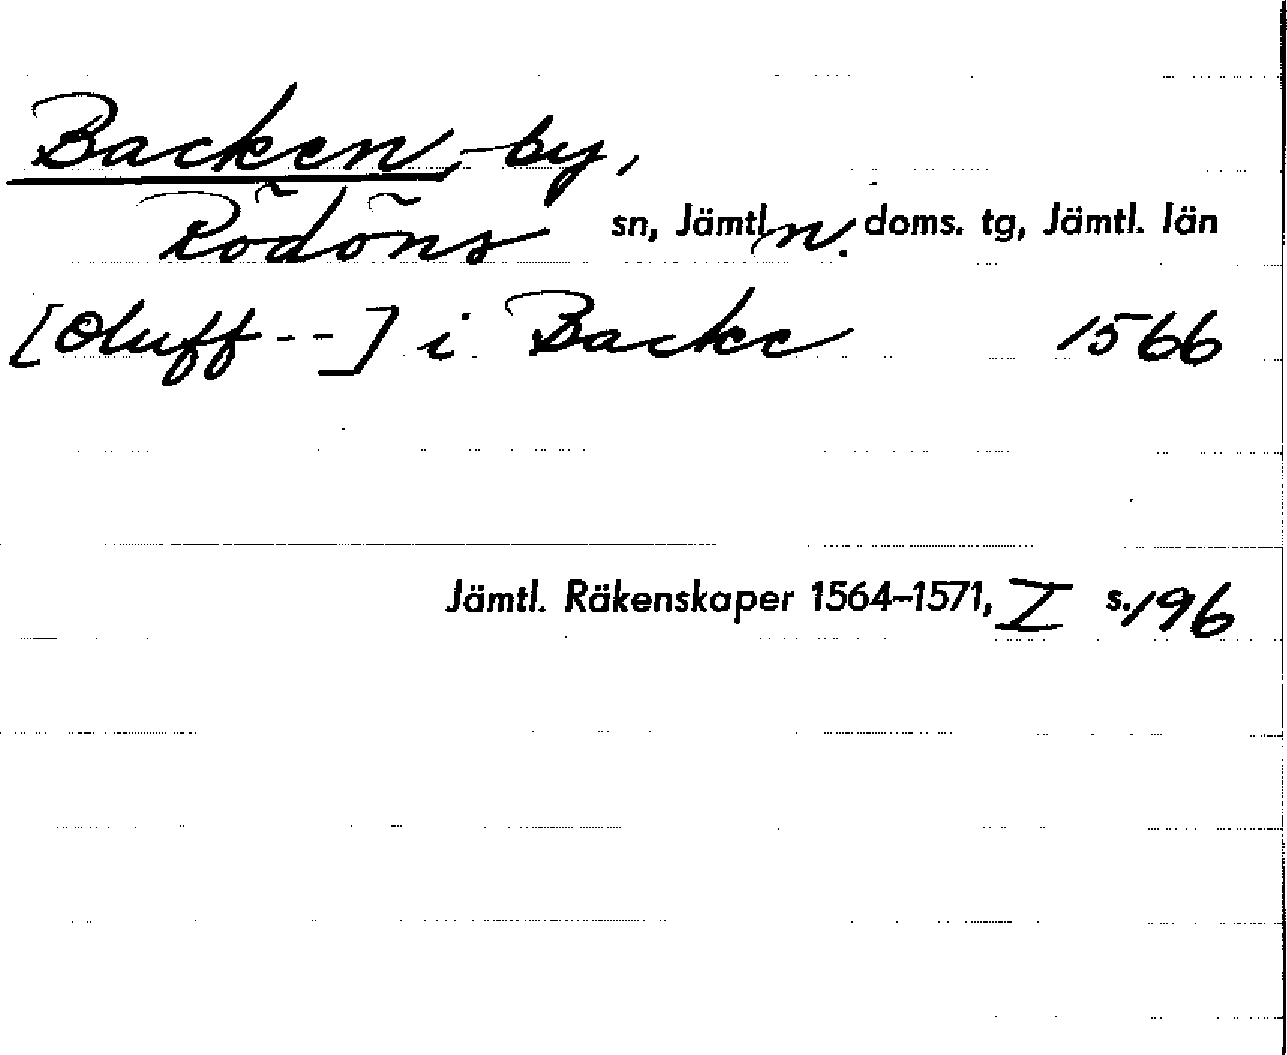 Backen, by,
Rödöns sn, Jämtl. n. doms. tg, Jämtl. län
[Oluff - -] i Backe 1566
Jämtl. Räkenskaper 1564–1571, I s. 196